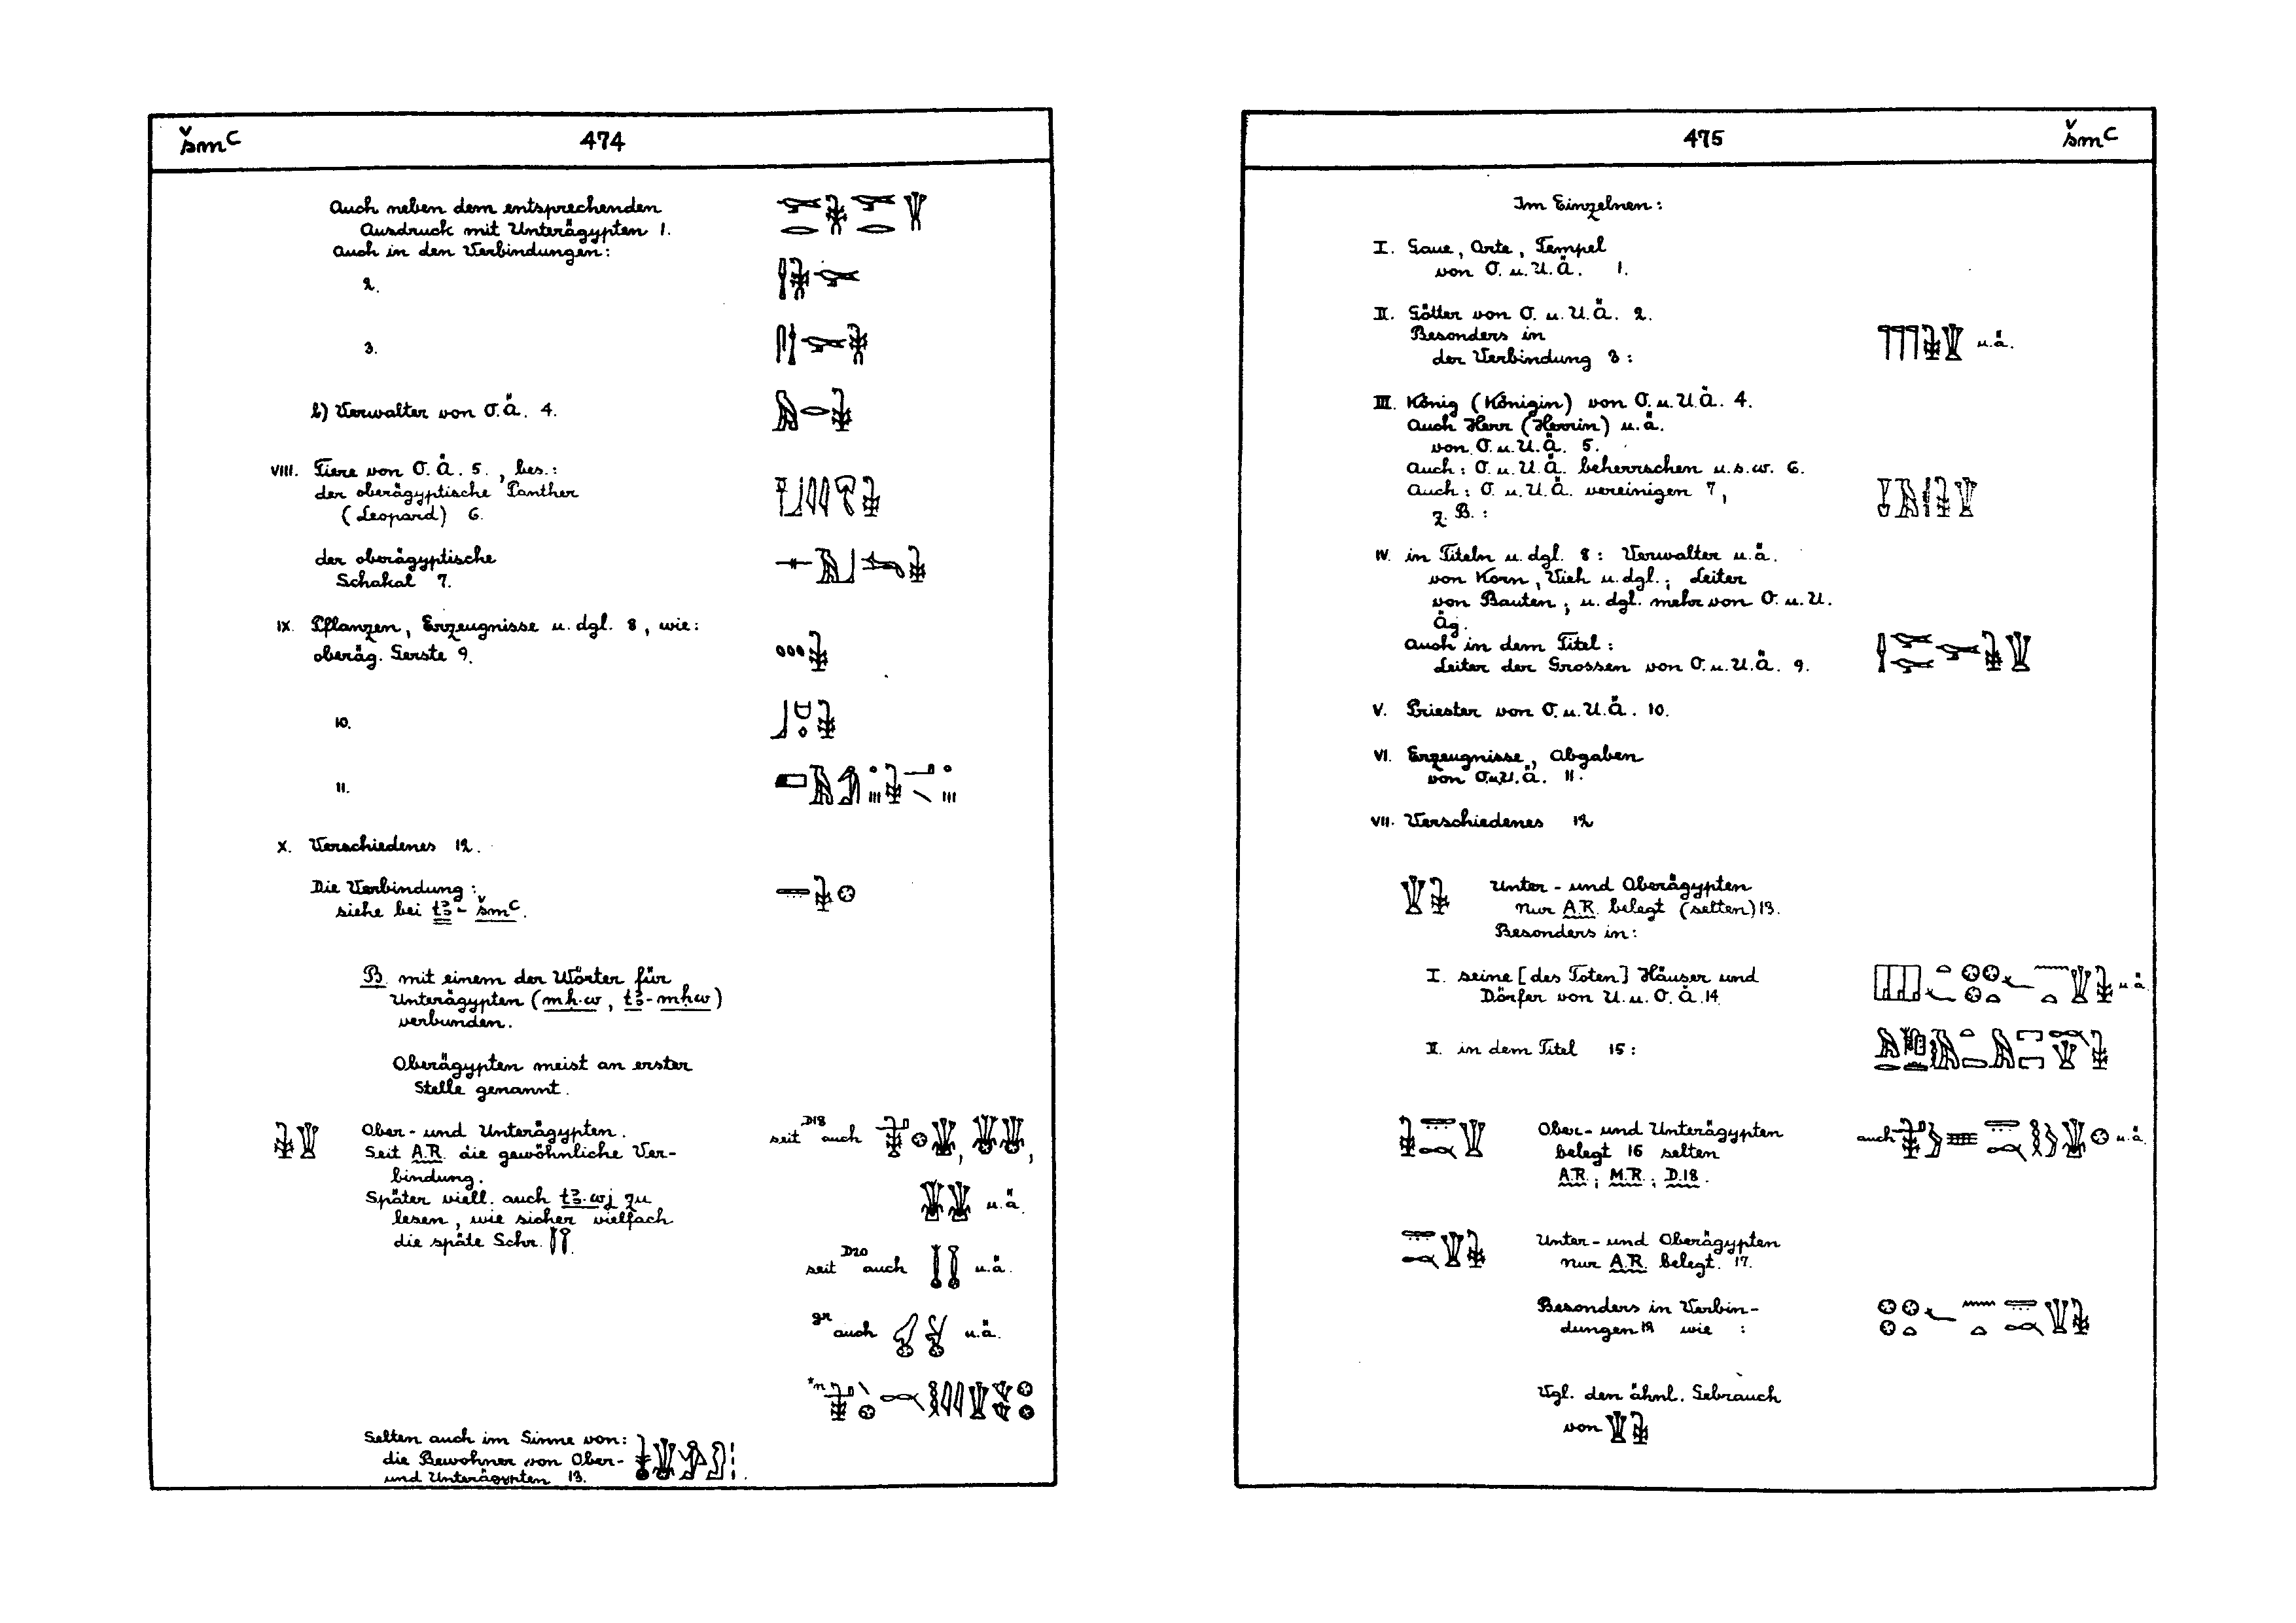 šmꜥ
474
Auch neben dem entsprechenden
Ausdruck mit Unterägypten 1.
Auch in den Verbindungen:
2.
3.
b) Verwalter von O.Ä. 4.
VIII. Tiere von O.Ä. 5., bes.:
der oberägyptische Panther
(Leopard) 6.
der oberägyptische
Schakal 7.
IX. Pflanzen, Erzeugnisse u. dgl. 8, wie:
oberäg. Gerste 9.
10.
11.
X. Verschiedenes 12.
Die Verbindung:
siehe bei tꜣ-šmꜥ.
B mit einem der Wörter für
Unterägypten (mḥ.w, tꜣ-mḥw)
verbunden.
Oberägypten meist an erster
Stelle genannt.
Ober- und Unterägypten.
Seit A.R. die gewöhnliche Ver-
bindung.
Später viell. auch tꜣ.wj zu
lesen, wie sicher vielfach
die späte Schr.
seit D18 auch
u.ä.
seit D20 auch u.ä.
gr auch u.ä.
*n
Selten auch im Sinne von:
die Bewohner von Ober-
und Unterägypten 13.
475
šmꜥ
Im Einzelnen:
I. Gaue, Orte, Tempel
von O. u. U.Ä. 1.
II. Götter von O. u. U.Ä. 2.
Besonders in
der Verbindung 3: u.ä.
III. König (Königin) von O. u. U.Ä. 4.
Auch Herr (Herrin) u.ä.
von O. u. U.Ä. 5.
Auch: O. u. U.Ä. beherrschen u.s.w. 6.
Auch: O. u. U.Ä. vereinigen 7,
z. B.:
IV. in Titeln u. dgl. 8: Verwalter u.ä.
von Korn, Vieh u. dgl.; Leiter
von Bauten; u. dgl. mehr von O. u. U.
Äg.
Auch in dem Titel:
Leiter der Grossen von O. u. U.Ä. 9.
V. Priester von O. u. U.Ä. 10.
VI. Erzeugnisse, Abgaben
von O.u.U.Ä. 11.
VII. Verschiedenes 12
Unter- und Oberägypten
nur A.R. belegt (selten) 13.
Besonders in:
I. seine [des Toten] Häuser und
Dörfer von U. u. O. Ä. 14. u.ä.
II. in dem Titel 15:
Ober- und Unterägypten auch u.ä.
belegt 16 selten
A.R.; M.R.; D.18.
Unter- und Oberägypten
nur A.R. belegt. 17.
Besonders in Verbin-
dungen 18 wie :
Vgl. den ähnl. Gebrauch
von